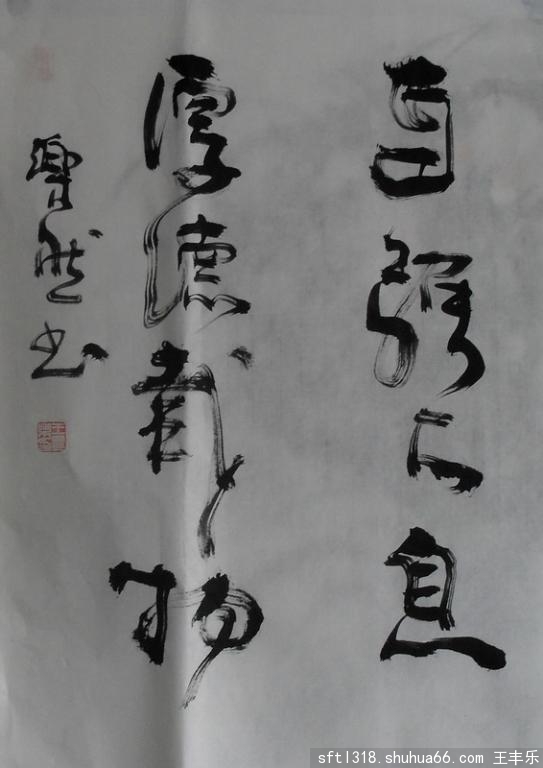 自强不息
厚德载物
乐然书
sftl318.shuhua66.com 王丰乐